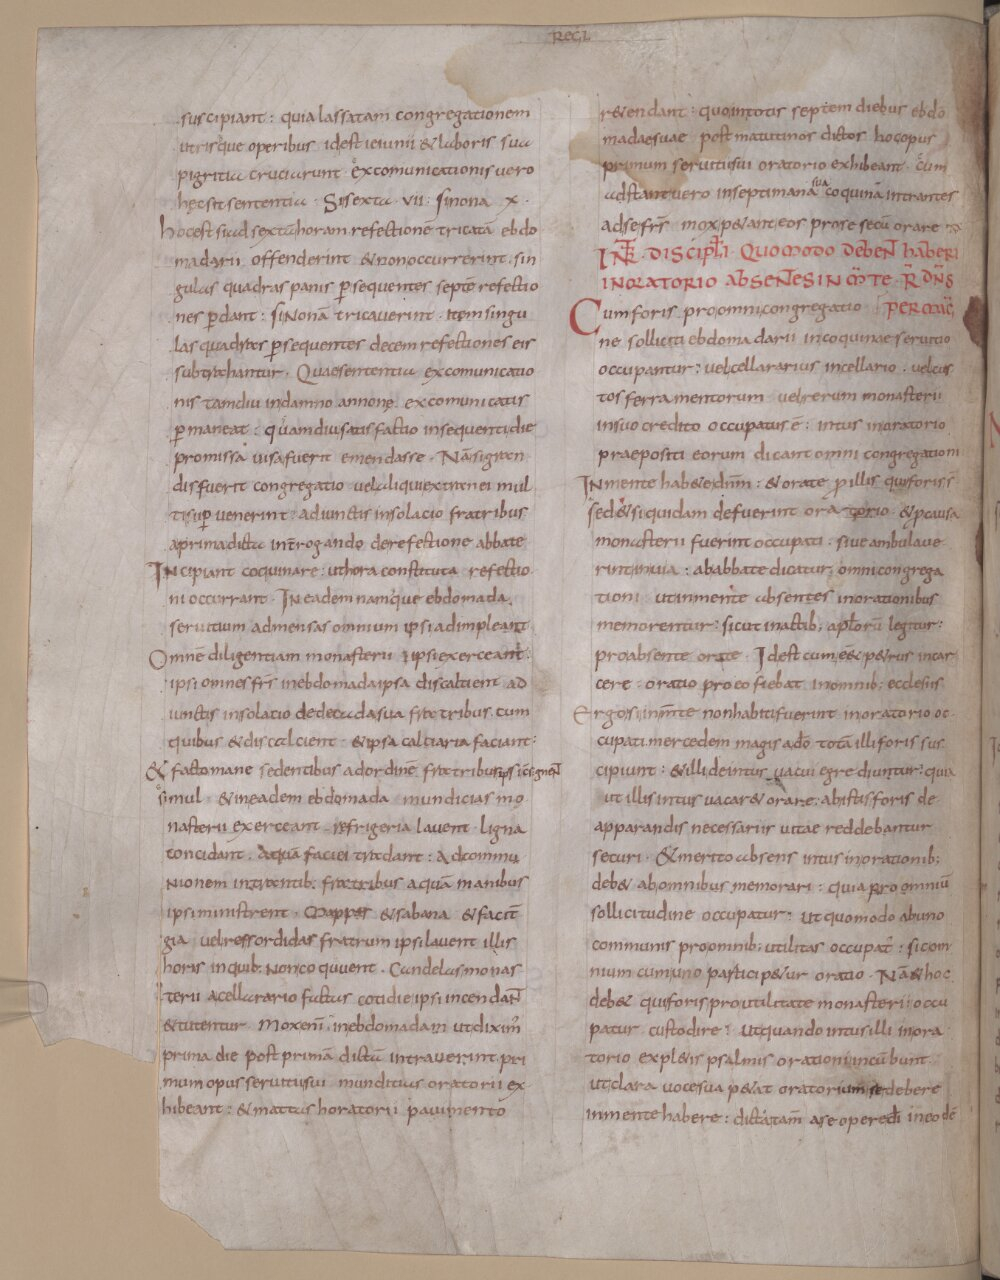 REGL
suscipiant : quia lassatam congregationem
utrisque operibus idest ieiunii & laboris sua
pigritia cruciarunt · excomunicationis uero
hęc sit sententia · Si sexta · VII · si nona · X ·
hoc est si ad sextā horam refectione tricata ebdo
madarii offenderint & non occurrerint · sin
gulas quadras panis ꝑsequentes septē refectio
nes ꝑdant : si Nonā tricauerint · Item singu
las quadras ꝑsequentes decem refectiones eis
subtrahantur · Quae sententia excomunicatio
nis tamdiu in damno annonę excomunicatis
ꝑmaneat : quamdiu satisfactio insequenti die
promissa uisa fuerit emendasse · Nā si gran
dis fuerit congregatio uel aliqui extranei mul
ti suꝑuenerint : adiunctis in solacio fratribus
a prima dicta int̄rogando de refectione abbate
INcipiant coquinare : ut hora constituta refectio
ni occurrant · IN eadem namque ebdomada
seruitium ad mensas omnium ipsi adimpleant
Omnē diligentiam monasterii ipsi exerceant :
ipsi omnes fr̄s in ebdomada ipsa discalcient ad
iunctis in solacio de decada sua fratribus cum
quibus & discalcient · & ipsa calciaria faciant :
& facto mane sedentibus ad ordinē fratribus
simul · & in eadem ebdomada mundicias mo
nasterii exerceant · refrigeria lauent · ligna
concidant · Aquā faciei tradant : Ad commu
Nionem intrantib; fratribus aquā manibus
ipsi ministrent · Mappas & sabana & facit̄
gia uel res sordidas fratrum ipsi lauent illis
horis in quib; Non coquuent · Candelas monas
terii a cellarario factas cotidie ipsi incendan̄t
& tutentur · Mox enī in ebdomadam ut diximꝰ
prima die post primā dictā intrauerint · pri
mum opus seruitii sui munditias oratorii ex
hibeant : & mattas horatorii pauimento
r&endant : quo in totis septem diebus ebdo
madae suae post matutinos dictos hoc opus
primum seruitii sui oratorio exhibeant · Cum
adstant uero in septimana sua coquinā intrantes
ad se fr̄s mox p&ant eos pro se secū orare
INT̄R · DISCIPL̄I · QUOMODO DEBEN̄T HABERI
IN ORATORIO ABSEN̄TES IN M̄TE · R̄ DN̄S
PER MAḠ
Cum foris pro omni congregatio
ne solliciti ebdomadarii in coquinae seruitio
occupantur : uel cellararius in cellario · uel cus
tos ferramentorum uel rerum monasterii
in suo credito occupatus ē : intus in oratorio
praepositi eorum dicant omni congregationi
IN mente hab&e dn̄m : & orate pro illis qui foris s̄
sed & si quidam defuerint oratorio · & ꝑ causa
monasterii fuerint occupati : siue ambulaue
rint in uia : ab abbate dicatur omni congrega
tioni ut in mente absentes in orationibus
memorentur : sicut in actib; apl̄orū legitur :
pro absente orate · Id est cum ēet p&rus in car
cere · oratio pro eo fiebat in omnib; ecclesiis
Ergo si in m̄te non habiti fuerint in oratorio oc
cupati · mercedem magis a dō totā illi foris sus
cipiunt : & illi deintus uacui egrediuntur : quia
ut illis intus uacar& orare : ab istis foris de
apparandis necessariis uitae reddebantur
securi · & merito absens intus in orationib;
deb& ab omnibus memorari : quia pro omniū
sollicitudine occupatur : Ut quomodo ab uno
communis pro omnib; utilitas occupat̄ : si com
nium cum uno particip&ur oratio · Nā & hoc
deb& qui foris pro utilitate monasterii occu
patur custodire : Ut quando intus illi in ora
torio expl&is psalmis orationi incūbunt
ut clara uoce sua p&at oratorium se debere
in mente habere : dictātam̄ a se opere dī in eo dē